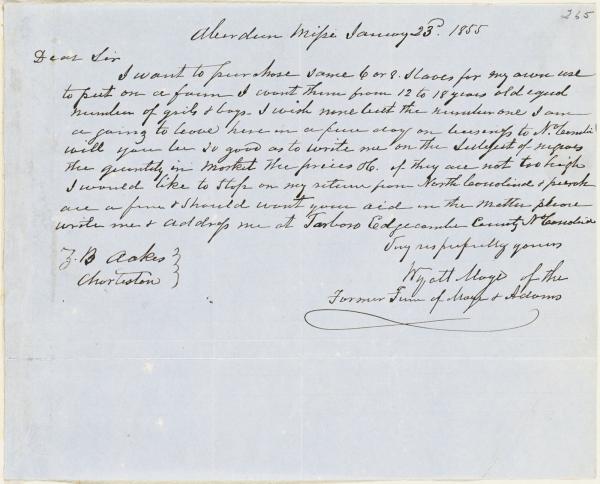 265
Aberdeen Mipi Januay 23d. 1855
Dear Sir
I want to purchase some 6 or 8. slaves for my own use
to put on a farm I want them from 12 to 18 years old equal
number of girls & boys. I wish none but the number one I am
a going to leave here in a few days on buisness to N. Carolin
will you be so good as to write me on the subject of negroes
the quantity in market the prices &c. if they are not too high
I would like to stop on my return from North Carolina &
are a few & should want your aid in the matter please
write me & address me at Tarboro Edgecombe County N Carolina
Very respectfully yours
Z. B Oakes
Charleston
Wyatt Moye of the
Former Firm of Moye & Adams